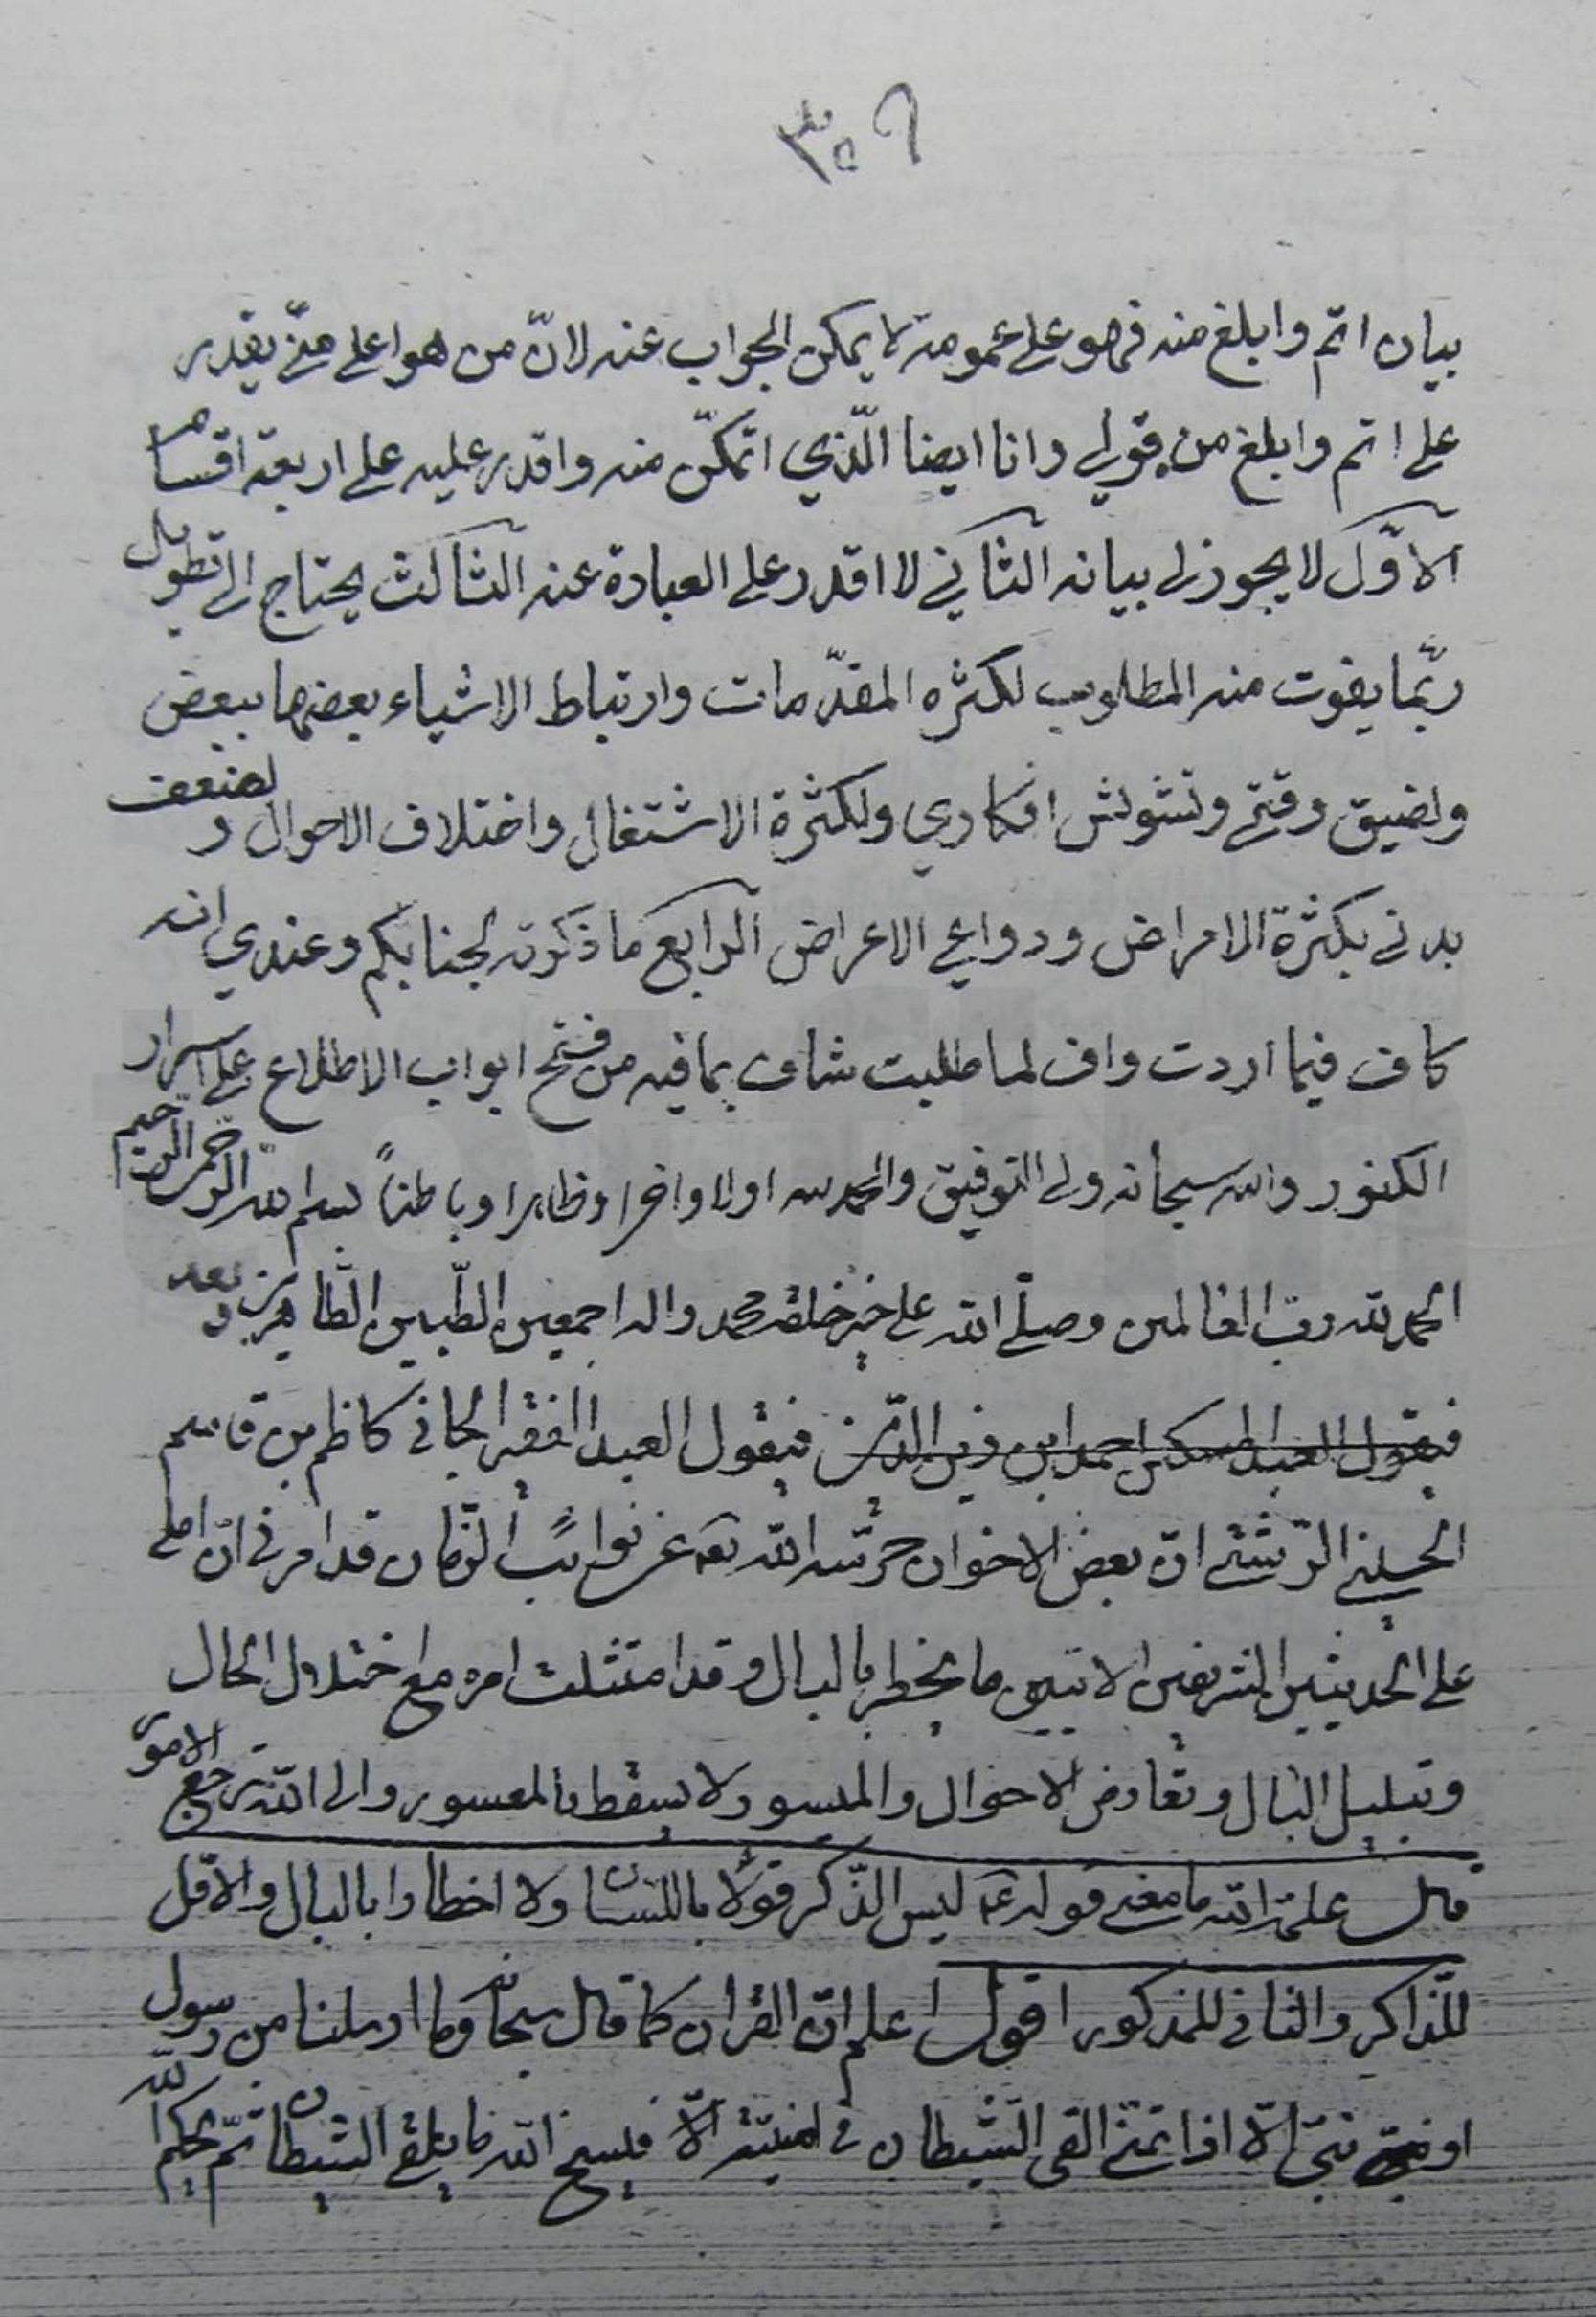 ٣٥٦
بيان اتم وابلغ منه فهو على عمومه لا يمكن الجواب عنه لانّ من هو اعلى منّي يقدر
على اتم وابلغ من قولي وانا ايضا الّذي اتمكّن منه واقدر عليه على اربعة اقسام
الاوّل لا يجوز لي بيانه الثاني لا اقدر على العبارة عنه الثالث يحتاج الى تطويل
ربّما يفوت منه المطلوب لكثره المقدّمات وارتباط الاشياء بعضها ببعض
ولضيق وقتي وتشوش افكاري ولكثرة الاشتغال واختلاف الاحوال ولضعف
بدني بكثرة الامراض ودواعي الاعراض الرابع ما ذكرته لجنابكم وعندي انه
كاف فيما اردت واف لما طلبت شاف بما فيه من فتح ابواب الاطلاع على اسرار
الكنوز والله سبحانه ولي التوفيق والحمد لله اولا واخرا وظاهرا وباطناً بسم الله الرحمن الرحيم
الحمد لله رب العالمين وصلّى الله على خير خلقه محمد واله اجمعين الطّيبين الطّاهرين وبعد
فيقول العبد المسكين احمد ابن زين الدّين فيقول العبد الفقير الجاني كاظم بن قاسم
الحسيني الرّشتي انّ بعض الاخوان حرّسه الله تعه عن نوائب الزمان قد امرني ان املي
على الحديثين الشريفين الاتيين ما يخطر بالبال وقد امتثلت امره مع اختلال الحال
وتبلبل البال وتعارض الاحوال والميسور لا يسقط بالمعسور والى الله ترجع الامور
قال علمه الله ما معنى قوله عه ليس الذّكر قولا باللسان ولا اخطارا بالبال والاوّل
للذاكر والثاني للمذكور اقول اعلم انّ القران كما قال سبحانه وما ارسلنا من رسول
او نبيّ الّا اذا تمنّى القى الشّيطان في امنيّته الّا فينسخ الله ما يلقي الشيطان ثمّ يحكم الله